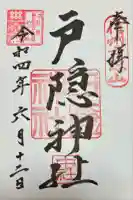 奉拝
戸隠神社
令和四年六月十二日